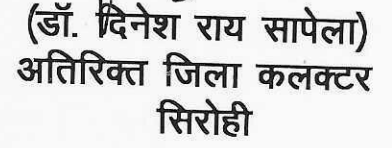 (डॉ. दिनेश राय सापेला)
अतिरिक्त जिला कलक्टर
सिरोही